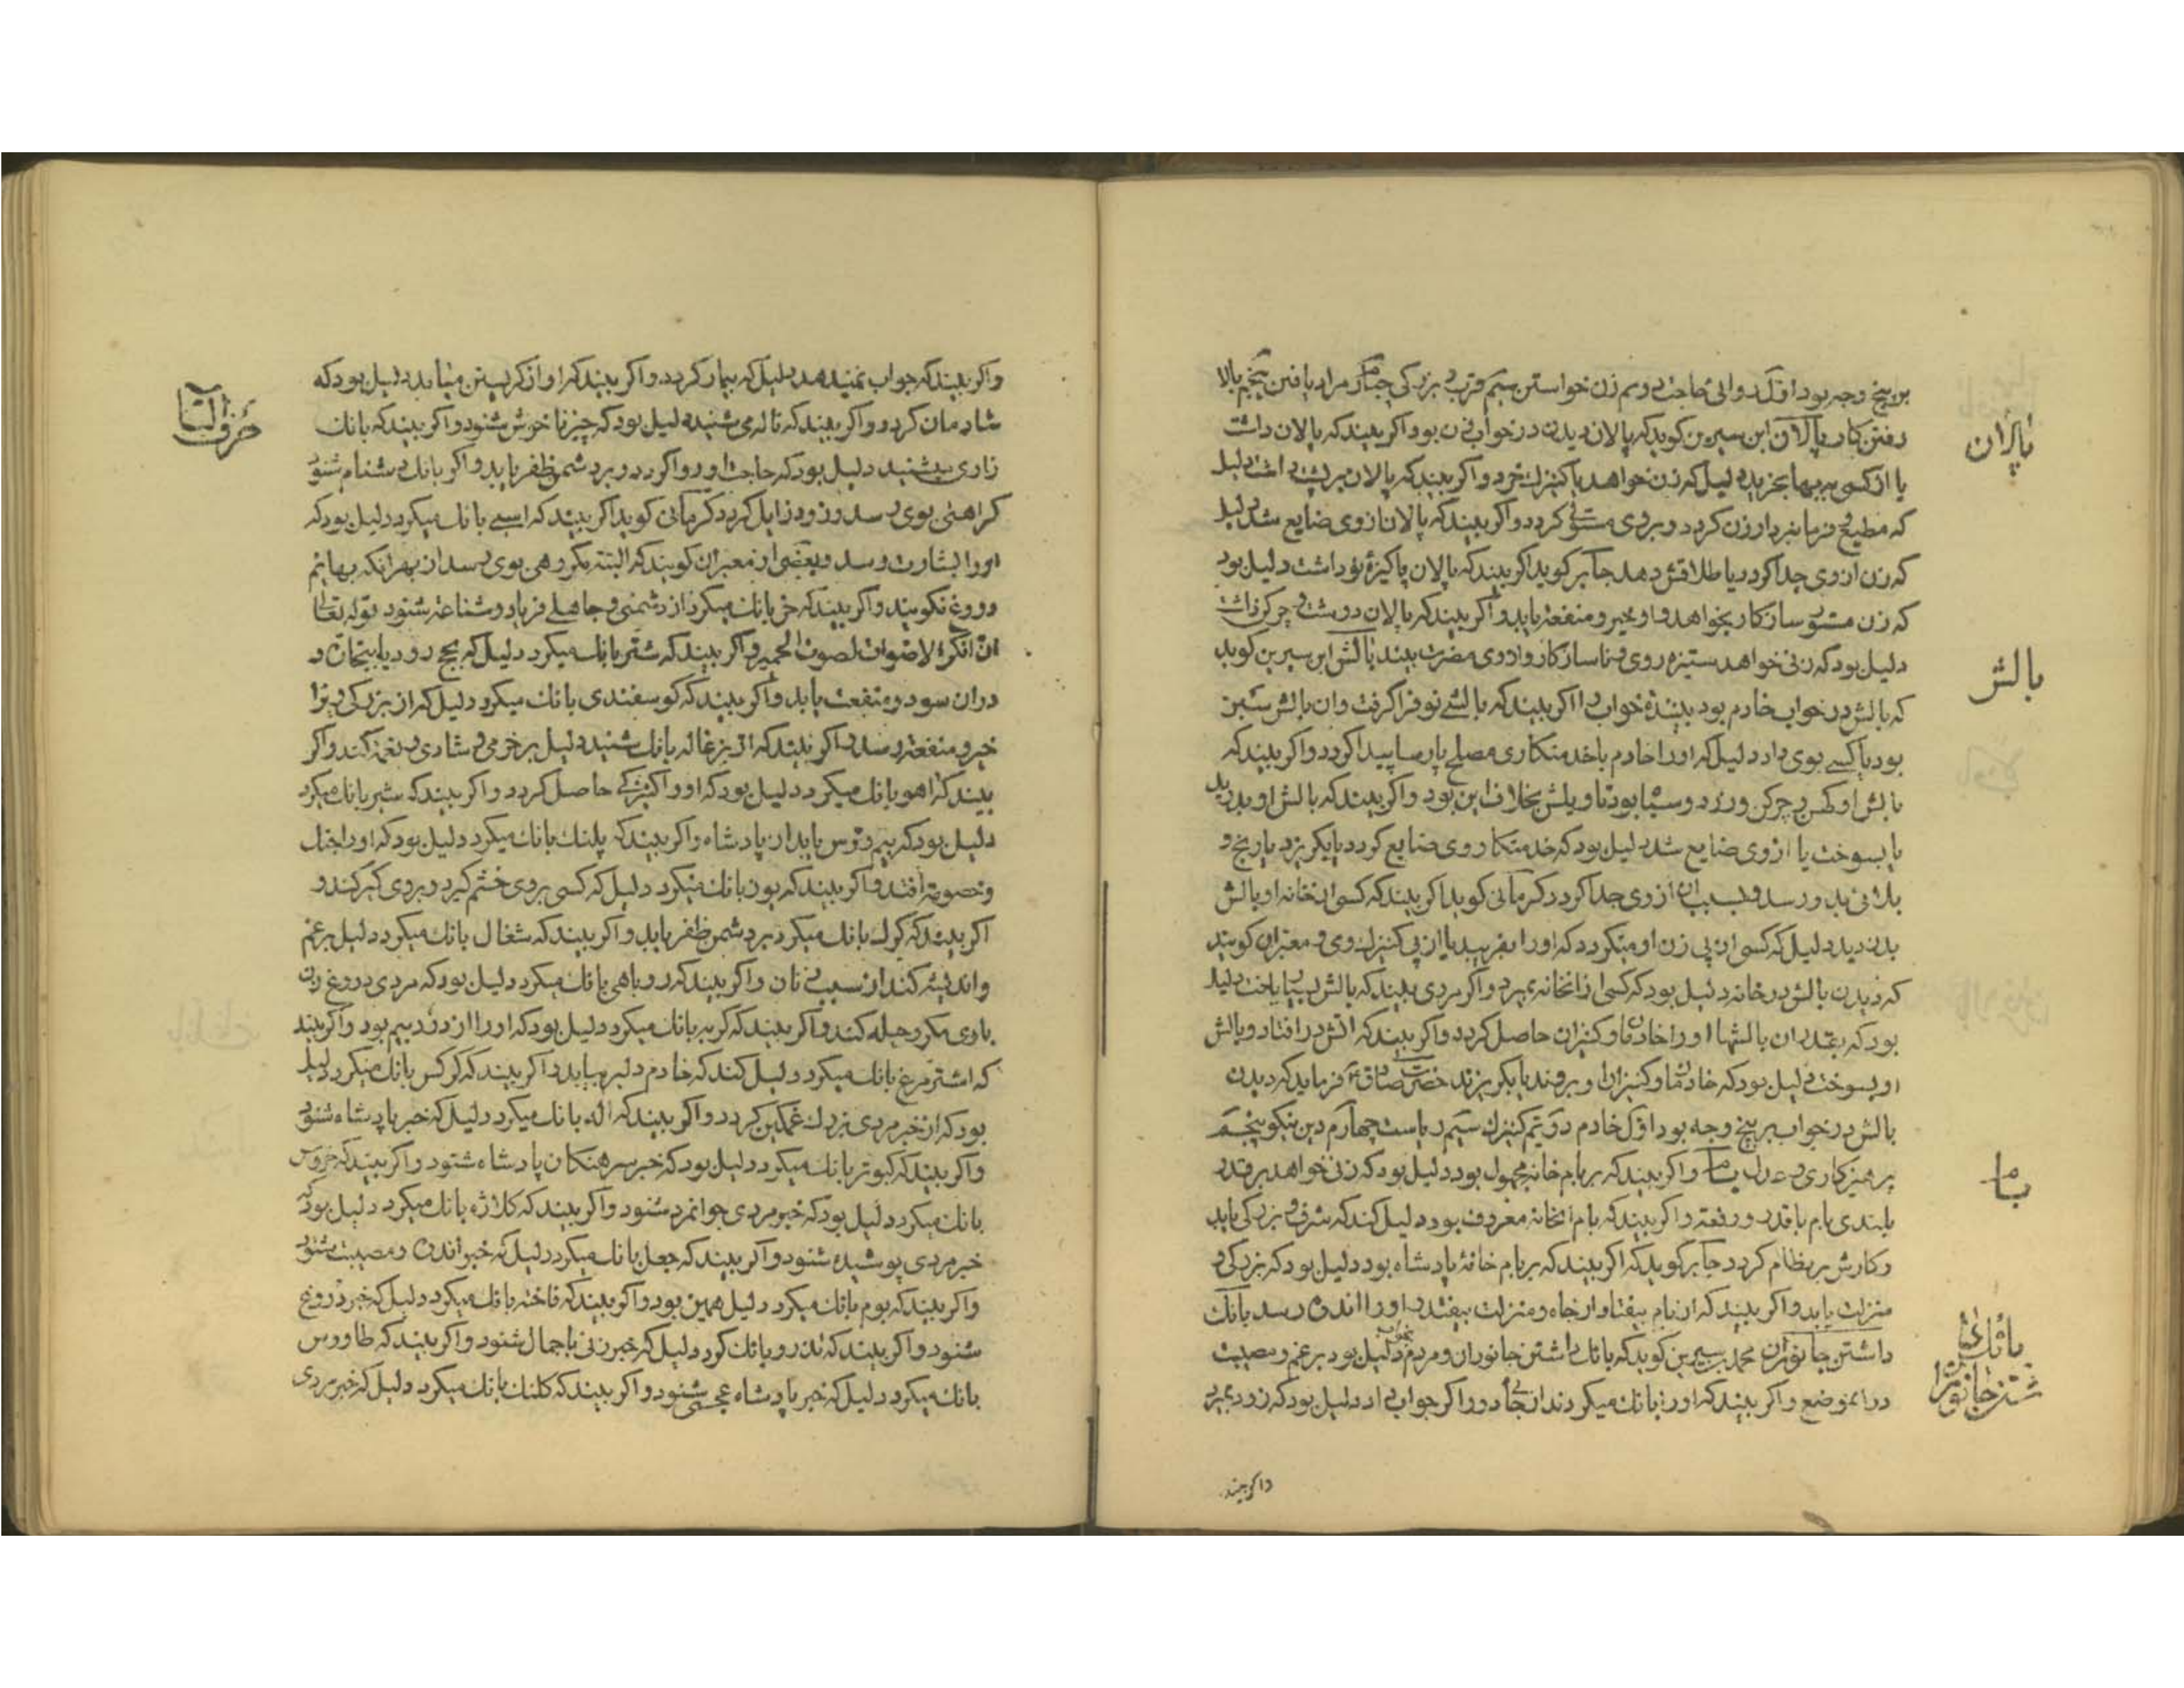 بر پنج وجه بود اول روائی حاجت دوم زن خواستن سیم قرب و بزرکی چهارم مراد یافتن پنجم بالا
رفتن کار پالان ابن سیرین کوید که پالان دیدن در خواب زن بود اکر بیند که پالان داشت
پالان
یا از کسی بها بخرید دلیل که زن خواهد یا کنیزک خرد و اکر بیند که پالان بر پشت داشت دلیل
که مطیع و فرمانبردار زن کردد و بر وی مستولی کردد و اکر بیند که پالان از وی ضایع شد دلیل
که زن از وی جدا کردد یا طلاقش دهد جابر کوید اکر بیند که پالان پاکیزه نو داشت دلیل بود
که زن مستور سازکار بخواهد و از او خیر و منفعت یابد و اکر بیند که پالان درشت و چرکن داشت
دلیل بود که زنی خواهد ستیزه روی و ناسازکار و از وی مضرت بیند بالش ابن سیرین کوید
بالش
که بالش در خواب خادم بود بیننده خواب را اکر بیند که بالشی نو فرا کرفت و ان بالش سبز
بود یا کسی بوی داد دلیل که او را خادم یا خدمتکاری مصلح پارسا پیدا کردد و اکر بیند که
بالش او کهن و چرکن و زرد و سیاه بود تاویلش بخلاف این بود و اکر بیند که بالش او بدرید
یا بسوخت یا از وی ضایع شد دلیل بود که خدمتکار وی ضایع کردد یا بکریزد یا رنج و
بلائی بدو رسد و بسبب ان از وی جدا کردد کرمانی کوید اکر بیند که کسی از خانه او بالش
بدزدید دلیل که کسی از پی زن او میکردد که او را بفریبد یا از پی کنیزک وی و معبران کویند
که دیدن بالش در خانه دلیل بود که کسی از انخانه بمیرد و اکر مردی بیند که بالش بسیار یافت دلیل
بود که بقدر ان بالشها او را خادمان و کنیزان حاصل کردد و اکر بیند که اتش در افتاد و بالش
او بسوخت دلیل بود که خادمان و کنیزان او بروند یا بکریزند حضرت صادق ع فرماید که دیدن
بالش در خواب بر پنج وجه بود اول خادم دویم کنیزک سیم ریاست چهارم دین نیکو پنجم
پرهیزکاری و عدل بام و اکر بیند که بر بام خانه مجهول بود دلیل بود که زنی خواهد بر قدر
بام
بلندی بام با قدر و رفعت و اکر بیند که بام انخانه معروف بود دلیل کند که شرف و بزرکی یابد
و کارش بر نظام کردد جابر کوید که اکر بیند که بر بام خانه پادشاه بود دلیل بود که بزرکی و
منزلت یابد و اکر بیند که از بام بیفتاد از جاه و منزلت بیفتد و او را اندوه رسد بانک
بانک داشتن جانوران
داشتن جانوران محمد بن سیرین کوید که بانک داشتن جانوران و مردم بخواب دلیل بود بر غم و مصیبت
در انموضع و اکر بیند که او را بانک میکردند از جای دور اکر جواب داد دلیل بود که زود بمیرد
واکر بیند
و اکر بیند که جواب نمیدهد دلیل که بیمار کردد و اکر بیند که اواز کریستن میاید دلیل بود که
حرف التا
شادمان کردد و اکر بیند که ناله می شنید دلیل بود که چیز ناخوش شنود و اکر بیند که بانک
زاری بشنید دلیل بود که حاجت او روا کردد و بر دشمن ظفر یابد و اکر بانک دشنام شنود
کراهتی بوی رسد و زود زایل کردد کرمانی کوید اکر بیند که اسبی بانک میکرد دلیل بود که
او را بشارت رسد و بعضی از معبران کویند که البته مکروهی بوی رسد از بهر انکه بهایم
دروغ نکویند و اکر بیند که خر بانک میکرد از دشمنی و جاهلی فریاد و شناعت شنود قوله تعالی
ان انکر الاصوات لصوت الحمیر و اکر بیند که شتر بانک میکرد دلیل که بحج رود یا بتجارت و
دران سود و منفعت یابد و اکر بیند که کوسفندی بانک میکرد دلیل که از بزرکی ویرا
خیر و منفعت رسد و اکر بیند که از بزغاله بانک شنید دلیل بر خرمی و شادی و نعمت کند و اکر
بیند که اهو بانک میکرد دلیل بود که او را کنیزکی حاصل کردد و اکر بیند که شیر بانک میکرد
دلیل بود که بیم و ترس یابد از پادشاه و اکر بیند که پلنک بانک میکرد دلیل بود که او را جنک
و خصومت افتد و اکر بیند که یوز بانک میکرد دلیل که کسی بر وی خشم کیرد و بر وی کبر کند و
اکر بیند که کرک بانک میکرد بر دشمن ظفر یابد و اکر بیند که شغال بانک میکرد دلیل بر غم
و اندیشه کند از سبب زنان و اکر بیند که روباهی بانک میکرد دلیل بود که مردی دروغ زن
با وی مکر و حیله کند و اکر بیند که کربه بانک میکرد دلیل بود که او را از دزد بیم بود و اکر بیند
که اشترمرغ بانک میکرد دلیل کند که خادم دلیر بیابد و اکر بیند که کرکس بانک میکرد دلیل
بود که از خبر مردی بزرک غمکین کردد و اکر بیند که اله بانک میکرد دلیل که خبر پادشاه شنود
و اکر بیند که کبوتر بانک میکرد دلیل بود که خبر سرهنکان پادشاه شنود و اکر بیند که خروس
بانک میکرد دلیل بود که خبر مردی جوانمرد شنود و اکر بیند که کلاژه بانک میکرد دلیل بود که
خبر مردی پوشیده شنود و اکر بیند که جعل بانک میکرد دلیل که خبر اندوه و مصیبت شنود
و اکر بیند که بوم بانک میکرد دلیل همین بود و اکر بیند که فاخته بانک میکرد دلیل که خبر دروغ
شنود و اکر بیند که تذرو بانک کرد دلیل که خبر زنی باجمال شنود و اکر بیند که طاووس
بانک میکرد دلیل که خبر پادشاه عجمی شنود و اکر بیند که کلنک بانک میکرد دلیل که خبر مردی